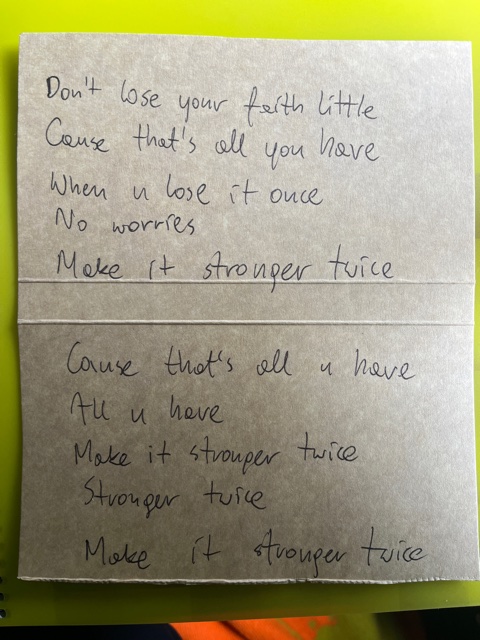 Don't lose your faith little
Cause that's all you have
When u lose it once
No worries
Make it stronger twice
Cause that's all u have
All u have
Make it stronger twice
Stronger twice
Make it stronger twice